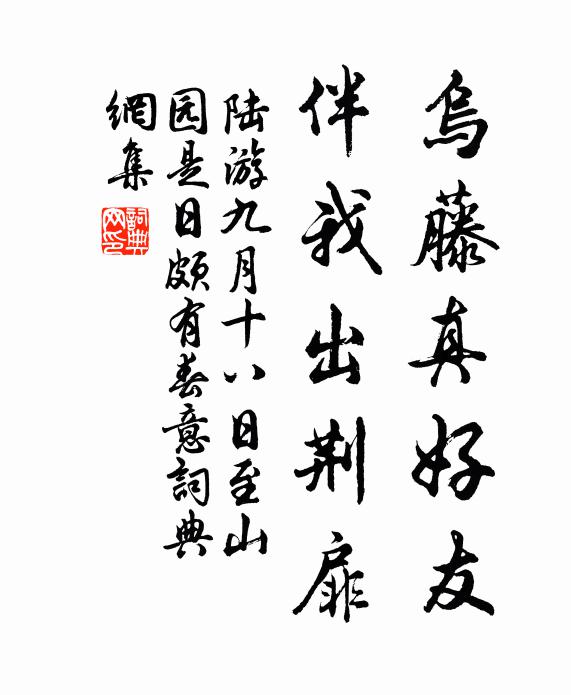 烏藤真好友
伴我出荆扉
陆游九月十八日至山
园是日頗有春意詞典
網集
詞典网印